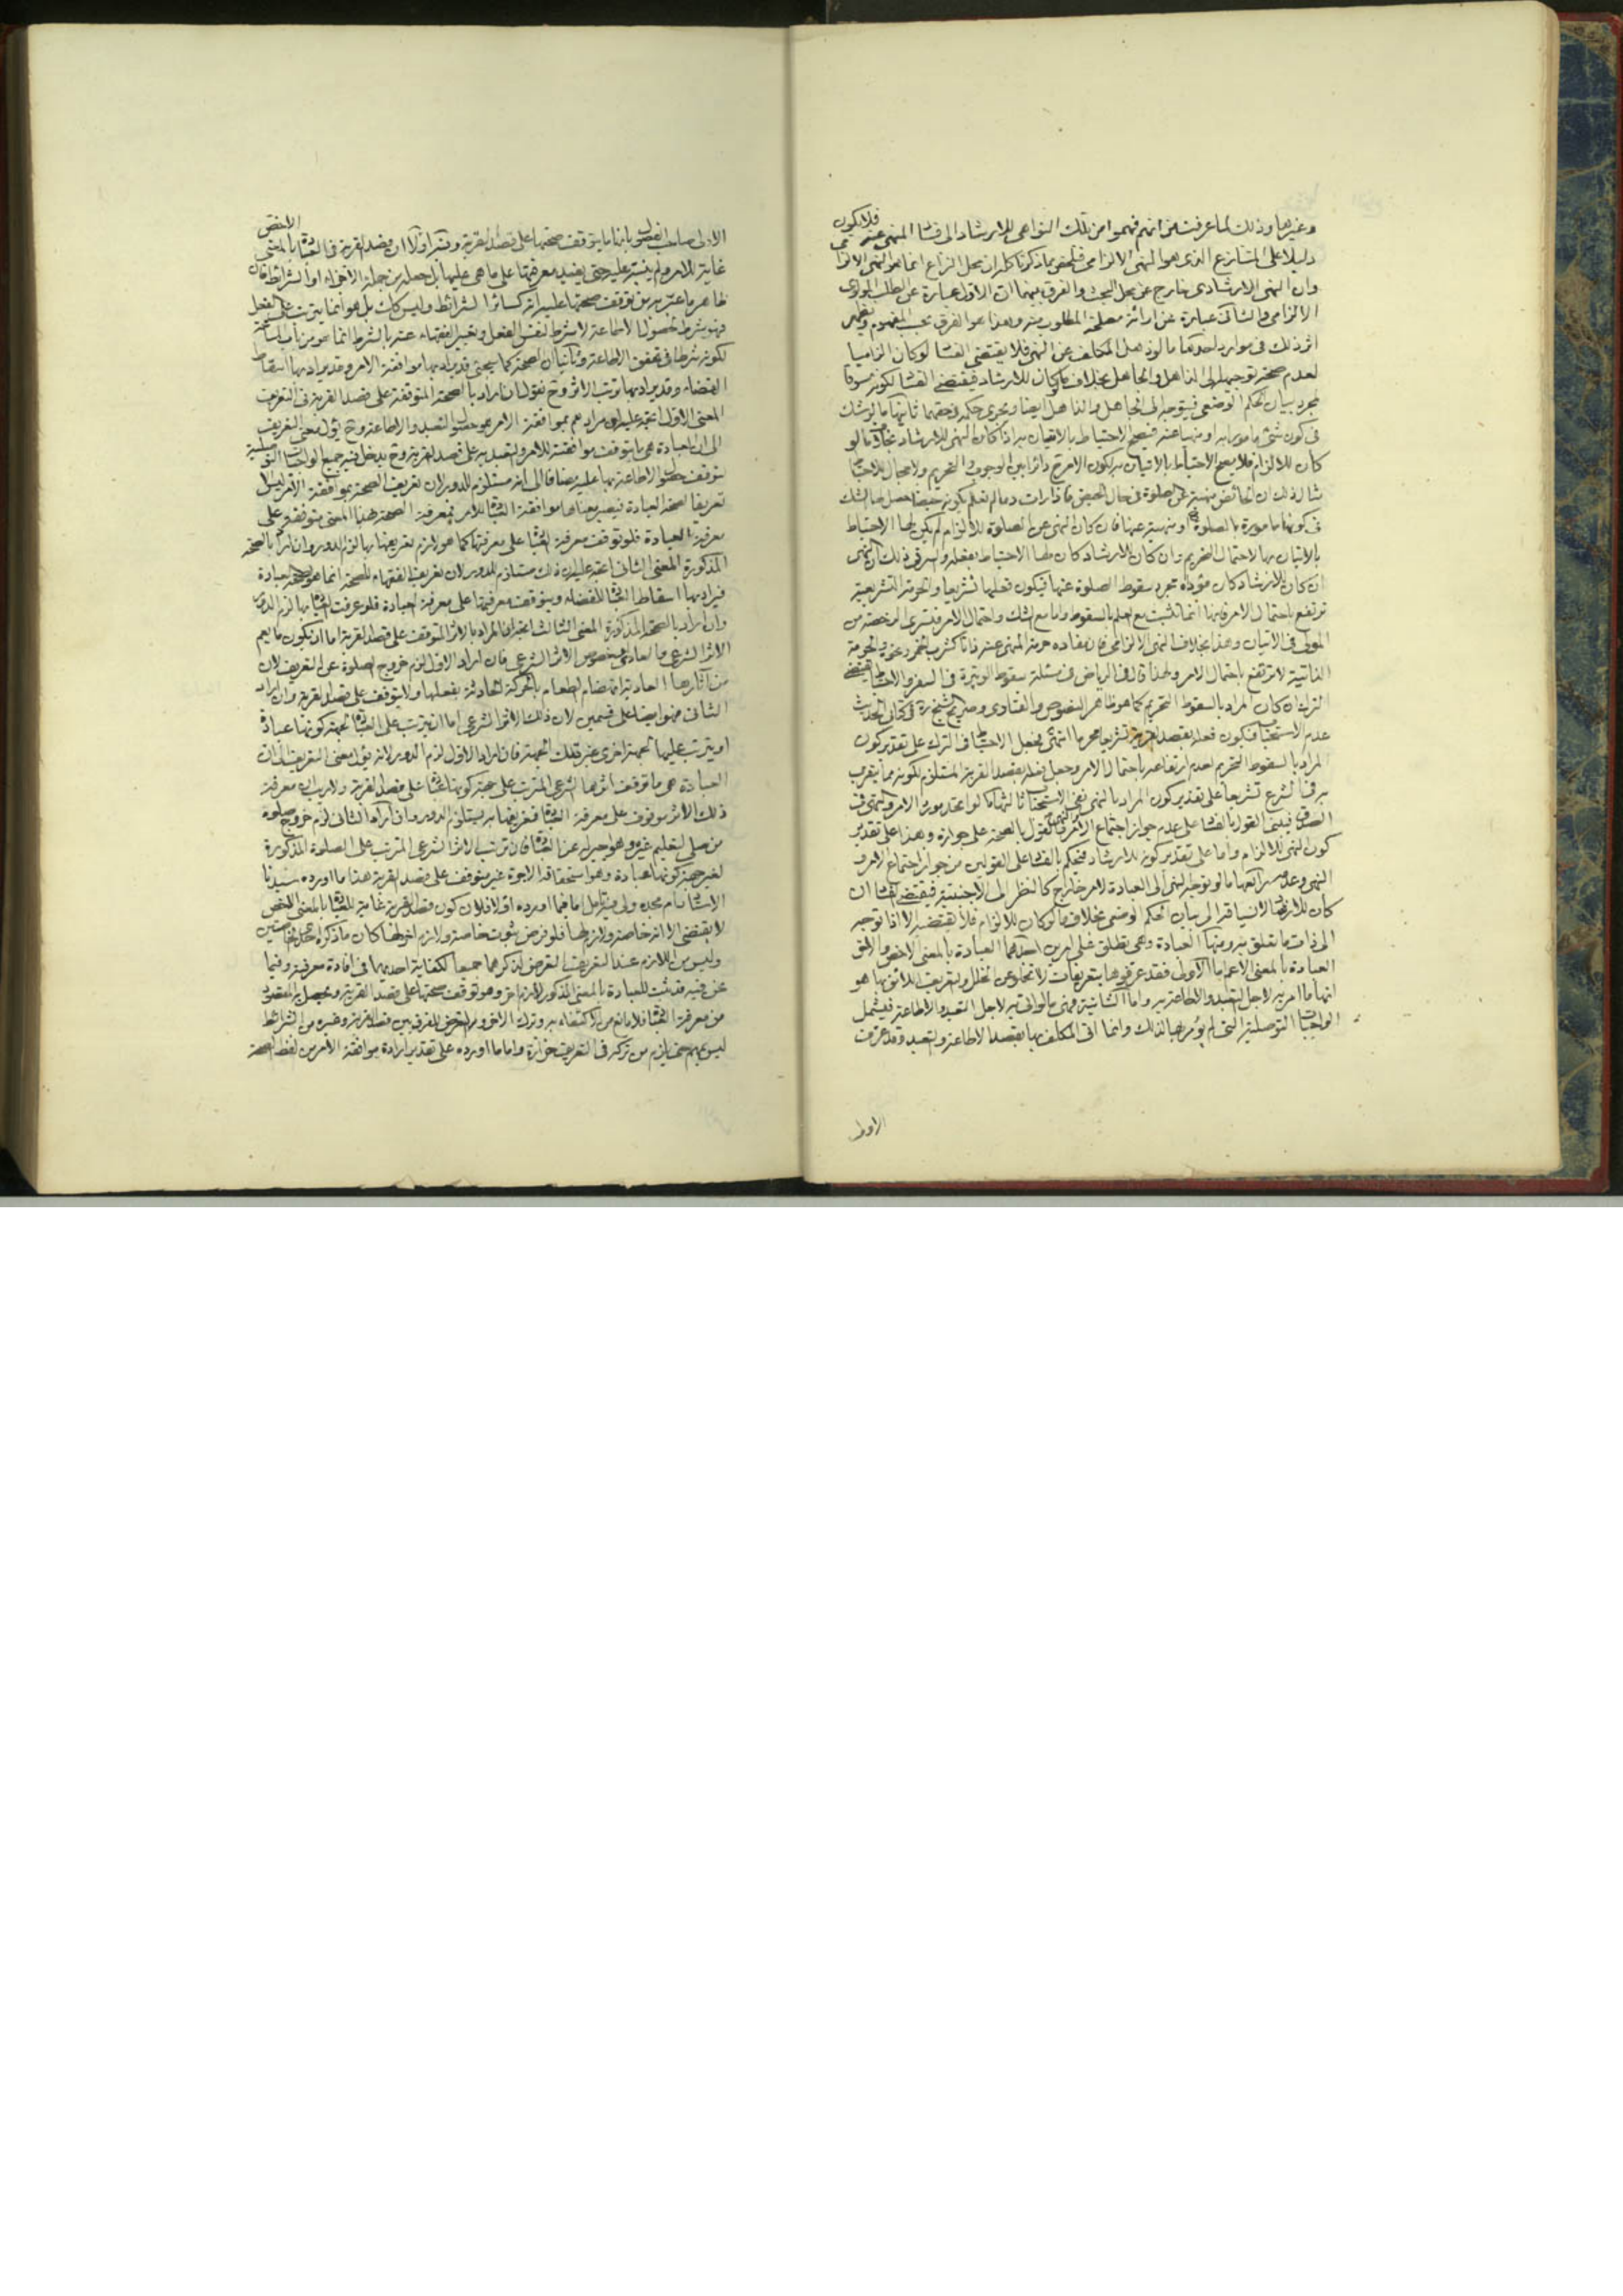 وغيرها وذلك لما عرفت من انهم فهموا من تلك النواهى للارشاد الى فساد المنهى عنه فلا يكون
دليلا على المتنازع الذى هو النهى الالزامى فتلخص مما ذكرنا كله ان محل النزاع انما هو النهى الالزامى
وان النهى الارشادى خارج عن محل البحث والفرق بينهما ان الاول عبارة عن الطلب المولوى
الالزامى والثانى عبارة عن ارائة مصلحة المطلوب منه وهذا هو الفرق بحسب المفهوم ويظهر
اثر ذلك فى موارد احدها ما لو ذهل المكلف عن النهى فلا يقتضى الفساد لو كان الزاميا
لعدم صحة توجيهه الى الذاهل والجاهل بخلاف ما لو كان للارشاد فيقتضى الفساد لكونه مسوقا
لمجرد بيان الحكم الوضعى فيتوجه الى الجاهل والذاهل ايضا ويجرى حكمه فى حقهما ثانيها ما لو شك
فى كون شئ مامورا به او منهيا عنه فيصح الاحتياط بالاتيان به اذا كان النهى للارشاد بخلاف ما لو
كان للالزام فلا يصح الاحتياط بالاتيان به لكون الامر ح دائرا بين الوجوب والتحريم ولا مجال للاحتياط
مثال ذلك ان الحائض منهية عن الصلوة فى حال الحيض فاذا رات دما لم تعلم بكونه حيضا حصل لها الشك
فى كونها مامورة بالصلوة ح او منهية عنها فان كان النهى عن الصلوة للالزام لم يكن لها الاحتياط
بالاتيان بها لاحتمال التحريم وان كان للارشاد كان لها الاحتياط بفعله والسر فى ذلك ان النهى
ان كان للارشاد كان مؤداه مجرد سقوط الصلوة عنها فيكون فعلها تشريعا والحرمة التشريعية
ترتفع باحتمال الامر فانها انما تثبت مع العلم بالسقوط واما مع الشك واحتمال الامر
المولى فى الاتيان وهذا بخلاف النهى الالزامى فان مفاده حرمة المنهى عنه ذاتا كشرب الخمر ونحوه والحرمة
الذاتية لا ترتفع باحتمال الامر ولهذا قال فى الرياض فى مسئلة سقوط الوتيرة فى السفر والاحتياط يقتضى
الترك ان كان المراد بالسقوط التحريم كما هو ظاهر النصوص والفتاوى وصريح
عدم الاستحباب فيكون فعله بقصد القربة تشريعا محرما انتهى فجعل الاحتياط فى الترك على تقدير كون
المراد بالسقوط التحريم لعدم ارتفاعه باحتمال الامر وجعل فعله بقصد القربة المستلزم لكونه مما يتقرب
به فى الشرع تشريعا على تقدير كون المراد بالنهى نفى الاستحباب ثالثها ما لو اتحد مورد الامر والنهى فى
الصدق فيبنى القول بالفساد على عدم جواز اجتماع الامر والنهى والقول بالصحة على جوازه وهذا على تقدير
كون النهى للالزام واما على تقدير كونه للارشاد فيحكم بالفساد على القولين من جواز اجتماع الامر و
النهى وعدمه رابعها ما لو توجه النهى الى العبادة لامر خارج كالنظر الى الاجنبية فيقتضى الفساد ان
كان للارشاد لانسياقه الى بيان الحكم الوضعى بخلاف ما لو كان للالزام فلا يقتضيه الا اذا توجه
الى ذات ما تعلق به ومنها العبادة وهى تطلق على امرين احدهما العبادة بالمعنى الاخص والاخرى
العبادة بالمعنى الاعم اما الاولى فقد عرفوها بتعريفات لا تخلو عن الخلل والتعريف اللائق بها هو
انها ما امر به لاجل التعبد والاطاعة به واما الثانية فهى ما لو اتى به لاجل التعبد والاطاعة فيشمل
الواجبات التوصلية التى لم يؤمر بها لذلك وانما اتى المكلف بها بقصد الاطاعة والتعبد وقد عرفت
الاولى
الاولى صاحب الفصول بانها ما يتوقف صحتها على قصد القربة وفيه اولا ان قصد القربة فى العبادة بالمعنى الاخص
غاية للامر ولم ينبه عليه حتى يفيد معرفتها على ما هى عليها بل جعله من جملة الاجزاء او الشرائط فان
ظاهر ما عبر به من توقف صحتها عليه انه كسائر الشرائط وليس كذلك بل هو انما يترتب على الفعل
فهو شرط لحصول الاطاعة لا شرط لنفس الفعل وتعبير الفقهاء عنه بالشرط انما هو من باب المسامحة
لكونه شرطا فى تحقق الاطاعة وثانيا ان الصحة كما يجئ قد يراد بها موافقة الامر وقد يراد بها اسقاط
القضاء وقد يراد بها ترتب الاثر وح نقول ان اراد بالصحة المتوقفة على قصد القربة فى التعريف
المعنى الاول اتجه عليه ان مرادهم بموافقة الامر هو حصول التعبد والاطاعة وح يؤل معنى التعريف
الى ان العبادة هى ما يتوقف موافقته للامر والتعبد به على قصد القربة وح يدخل فيه جميع الواجبات التوصلية
لتوقف حصول الاطاعة بها عليه مضافا الى انه مستلزم للدور لان تعريف الصحة بموافقة الامر ليس الا
تعريفا لصحة العبادة فيصير معناها موافقة العبادة للامر فمعرفة الصحة بهذا المعنى متوقفة على
معرفة العبادة فلو توقف معرفة العبادة على معرفتها كما هو لازم تعريفها بها لزم الدور وان اراد بالصحة
المذكورة المعنى الثانى اتجه عليه ان ذلك مستلزم للدور لان تعريف الفقهاء للصحة انما هو لصحة العبادة
فيراد بها اسقاط العبادة للقضاء ويتوقف معرفتها على معرفة العبادة فلو عرفت العبادة بها لزم الدور
وان اراد بالصحة المذكورة المعنى الثالث اتجه ان المراد بالاثر المتوقف على قصد القربة اما ان يكون ما يعم
الاثر الشرعى والعادى او خصوص الاثر الشرعى فان اراد الاول لزم خروج الصلوة عن التعريف لان
من آثارها العادية انهضام الطعام بالحركة الحادثة بفعلها ولا يتوقف على قصد القربة وان اراد
الثانى فهو ايضا على قسمين لان ذلك الاثر الشرعى اما ان يترتب على العبادة لجهة كونها عبادة
او يترتب عليها لجهة اخرى غير تلك الجهة فان اراد الاول لزم الدور لانه يؤل معنى التعريف الى ان
العبادة هى ما توقف اثرها الشرعى المترتب على جهة كونها عبادة على قصد القربة ولا ريب ان معرفة
ذلك الاثر موقوف على معرفة العبادة فتعريفها به يستلزم الدور وان اراد الثانى لزم خروج صلوة
من صلى لتعليم غيره وهو اجير له عن العبادة فان ترتب الاثر الشرعى المترتب على الصلوة المذكورة
لغير جهة كونها عبادة وهو استحقاقه الاجرة غير متوقف على قصد القربة هذا ما اورده سيدنا
الاستاد دام مجده ولى فيه تامل اما فيما اورده اولا فلان كون قصد القربة غاية للعبادة بالمعنى الاخص
لا يقتضى الا انه خاصة ولازم لها فلو فرض ثبوت خاصة ولازم اخر لها كان ما ذكر احدى الخاصتين
وليس من اللازم عند التعريف التعرض لذكرهما جميعا لكفاية احديهما فى افادة معرفته وفيما
نحن فيه قد ثبت للعبادة بالمعنى المذكور لازم اخر وهو توقف صحتها على قصد القربة ويحصل به المقصود
من معرفة العبادة فلا مانع من الاكتفاء به وترك الاخر والتعرض للفرق بين قصد القربة وغيره من الشرائط
ليس بمهم حتى يلزم من تركه فى التعريف حزازة واما ما اورده على تقدير ارادة موافقة الامر من لفظ الصحة